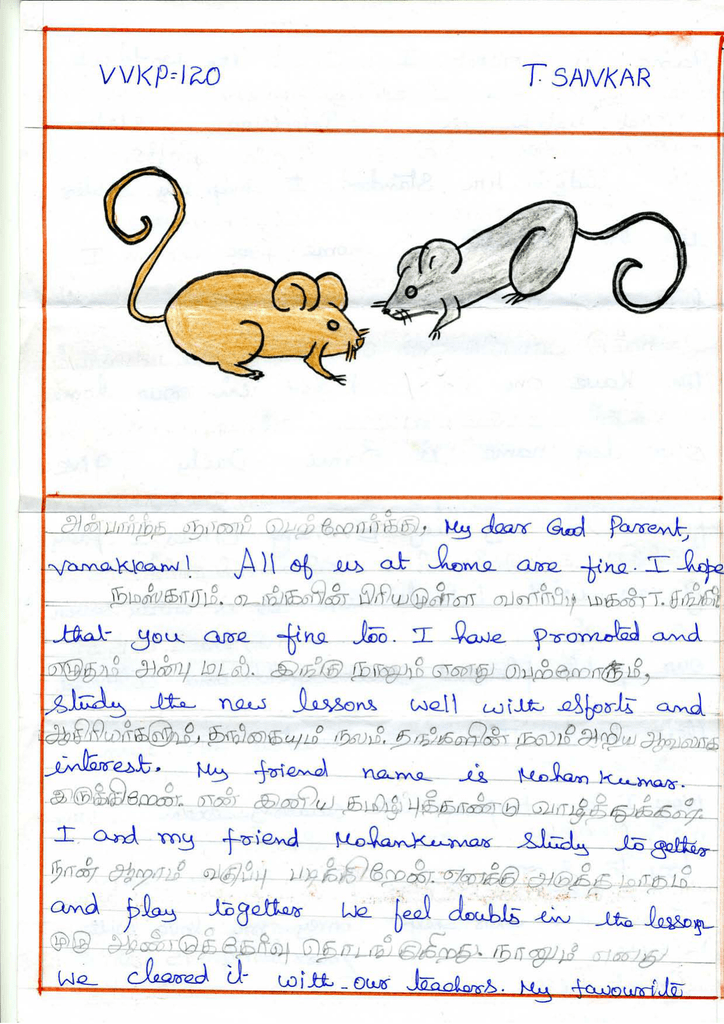 VVKP=120 T. SANKAR
அன்பார்ந்த ஞானப் பெற்றோர்க்கு, My dear God Parent,
vanakkam! All of us at home are fine. I hope
நமஸ்காரம். உங்களின் பிரியமுள்ள வளர்ப்பு மகன் T. சங்கர்
that you are fine too. I have promoted and
எழுதும் அன்பு மடல். இங்கு நானும் எனது பெற்றோரும்,
study the new lessons well with esforts and
ஆசிரியர்களும், தங்கையும் நலம். தங்களின் நலம் அறிய ஆவலாக
interest. My friend name is Mohan Kumar.
இருக்கிறேன். என் இனிய தமிழ் புத்தாண்டு வாழ்த்துக்கள்.
I and my friend Mohankumar study together
நான் ஆறாம் வகுப்பு படிக்கிறேன். எனக்கு அடுத்த மாதம்
and play together we feel doubts in the lesson
முழு ஆண்டுத்தேர்வு தொடங்குகிறது. நானும் எனது
we cleared it with our teachers. My favourite